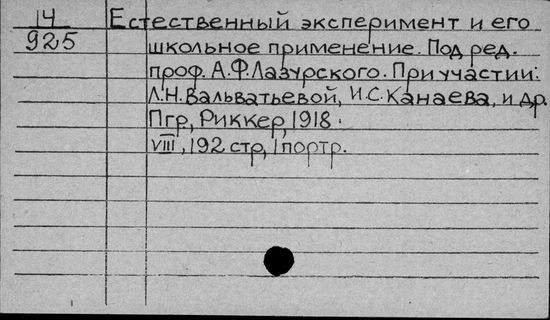 14
925
Естественный эксперимент и его
школьное применение. Под ред.
проф. А.Ф. Лазурского. При участии:
Л.Н. Вальватьевой, И.С. Канаева, и др.
Пгр, Риккер, 1918.
VIII, 192 стр, 1 портр.